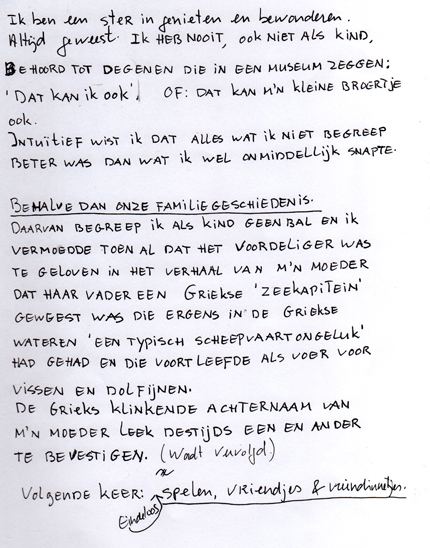 Ik ben een ster in genieten en bewonderen.
Altijd geweest. Ik HEB NOOIT, OOK NIET ALS KIND,
BEHOORD TOT DEGENEN DIE IN EEN MUSEUM ZEGGEN:
'DAT KAN IK OOK'. OF: DAT KAN M'N KLEINE BROERTJE
OOK.
INTUÏTIEF WIST IK DAT ALLES WAT IK NIET BEGREEP
BETER WAS DAN WAT IK WEL ONMIDDELLIJK SNAPTE.
BEHALVE DAN ONZE FAMILIEGESCHIEDENIS.
DAARVAN BEGREEP IK ALS KIND GEEN BAL EN IK
VERMOEDDE TOEN AL DAT HET VOORDELIGER WAS
TE GELOVEN IN HET VERHAAL VAN M'N MOEDER
DAT HAAR VADER EEN GRIEKSE 'ZEEKAPITEIN'
GEWEEST WAS DIE ERGENS IN DE GRIEKSE
WATEREN 'EEN TYPISCH SCHEEPVAARTONGELUK'
HAD GEHAD EN DIE VOORTLEEFDE ALS VOER VOOR
VISSEN EN DOLFIJNEN.
DE GRIEKS KLINKENDE ACHTERNAAM VAN
M'N MOEDER LEEK DESTIJDS EEN EN ANDER
TE BEVESTIGEN. (Wordt vervolgd)
VOLGENDE KEER: Eindeloos spelen, vriendjes & vriendinnetjes.